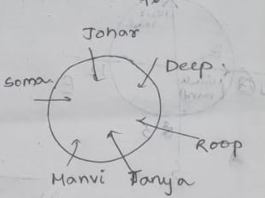 Johar
Deep.
Soma
Roop
Manvi
Tanya